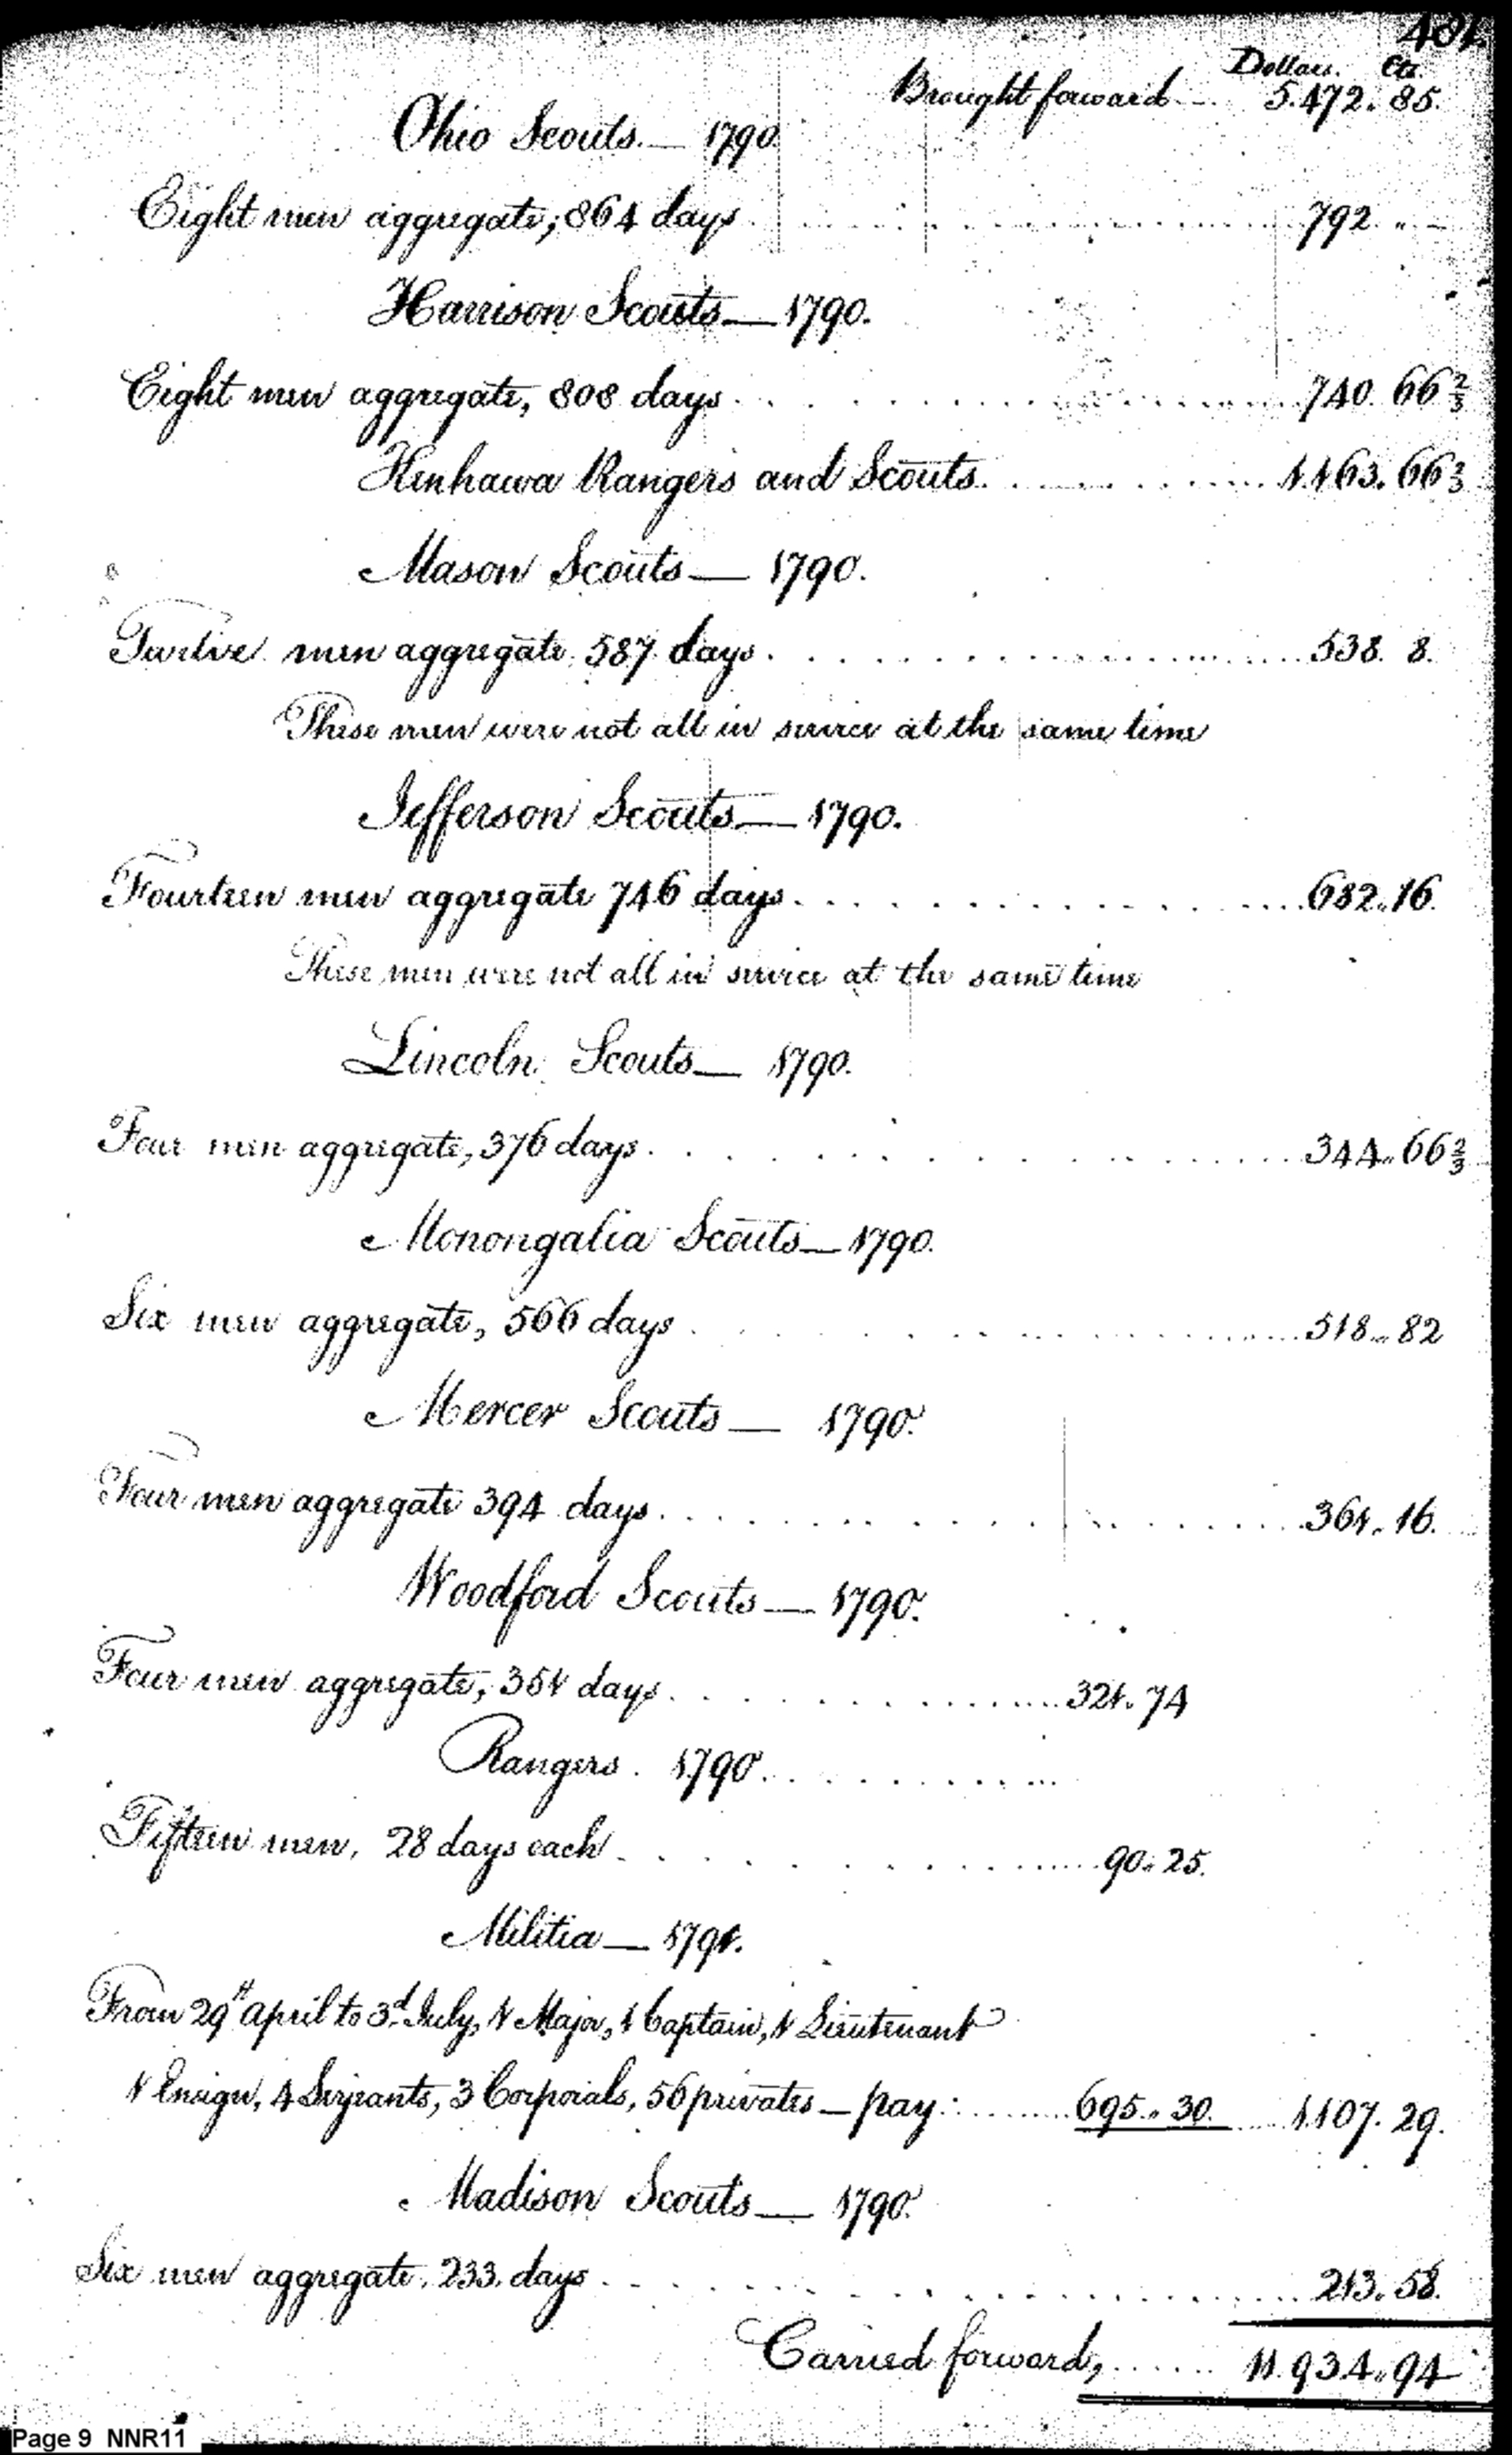 401.
Dollars. Cts.
Brought forward ... 5.472. 85.
Ohio Scouts. — 1790.
Eight men aggregate, 864 days ... 792. " —
Harrison Scouts — 1790.
Eight men aggregate, 808 days ... 740. 66 2/3
Kenhawa Rangers and Scouts ... 1.163. 66 2/3
Mason Scouts — 1790.
Twelve men aggregate 587 days ... 538. 8.
These men were not all in service at the same time
Jefferson Scouts — 1790.
Fourteen men aggregate 746 days ... 682. 16.
These men were not all in service at the same time
Lincoln Scouts — 1790.
Four men aggregate, 376 days ... 344. 66 2/3
Monongalia Scouts — 1790.
Six men aggregate, 566 days ... 518. 82
Mercer Scouts — 1790.
Four men aggregate 394 days ... 361. 16.
Woodford Scouts — 1790.
Four men aggregate, 351 days ... 321. 74
Rangers. 1790. ...
Fifteen men, 28 days each ... 90. 25.
Militia — 1791.
From 29th April to 3d. July, 1 Major, 1 Captain, 1 Lieutenant
1 Ensign, 4 Serjeants, 3 Corporals, 56 privates — pay: ... 695. 30. ... 1.107. 29.
Madison Scouts — 1790.
Six men aggregate, 233 days ... 213. 58.
Carried forward, ... 11.934. 94
Page 9 NNR11